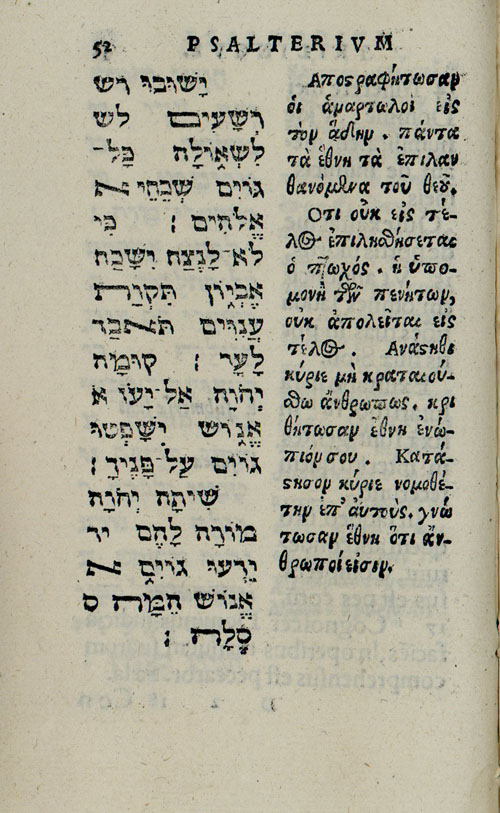 52 PSALTERIVM
יָשׁוּבוּ רש
רְשָׁעִים לש
לִשְׁאוֹלָה כָּל־
גּוֹיִם שְׁכֵחֵי א
אֱלֹהִים׃ כִּי
לֹא־לָנֶצַח יִשָּׁכַח
אֶבְיוֹן תִּקְוַת
עֲנָוִים תֹּאבַד
לָעַד׃ קוּמָה
יְהֹוָה אַל־יָעֹז א
אֱנוֹשׁ יִשָּׁפְטוּ
גוֹיִם עַל־פָּנֶיךָ׃
שִׁיתָה יְהֹוָה
מוֹרָה לָהֶם יד
יֵדְעוּ גוֹיִם א
אֱנוֹשׁ הֵמָּה ס
סֶלָה׃
Αποςραφήτωσαν
οἱ ἁμαρτωλοὶ εἰς
τὸν ἅδην. πάντα
τὰ ἔθνη τὰ ἐπιλαν
θανόμενα τοῦ θεοῦ.
Οτι οὐκ εἰς τέ-
λος ἐπιληθήσεται
ὁ πτωχός. ἡ ὑπο-
μονὴ τῶν πενήτων,
οὐκ ἀπολεῖται εἰς
τέλος. Ανάςηθι
κύριε μὴ κραταιού-
σθω ἄνθρωπος. κρι
θήτωσαν ἔθνη ἐνώ-
πιόν σου. Κατά-
ςησον κύριε νομοθέ-
την ἐπ' αὐτούς. γνώ
τωσαν ἔθνη ὅτι ἄν-
θρωποί εἰσιν.